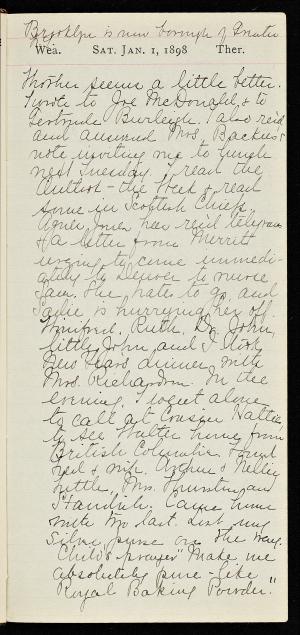 Brooklyn is now borough of Greater
Wea. SAT. JAN. 1, 1898 Ther.
Mother seems a little better.
I wrote to Joe McDonald, & to
Gertrude Burleigh. I also rec'd
and answered Mrs. Backus's
note inviting me to lunch
next Tuesday. I read the
Outlook - the Week & read
some in Scottish Chiefs.
Agnes Jones has rec'd telegram
& a letter from Merritt
urging to come immedi-
ately to Denver to nurse
Sam. She hates to go, and
Sadie is hurrying her off.
Winifred, Ruth, Dr. John,
little John and I took
New Years dinner with
Mrs. Richardson. In the
evening, I went alone
to call at Cousin Hattie's
to see Walter home from
British Columbia. Found
Ned & wife, Archie & Nellie
Mrs. Thurston and
Standish. Came home
with two last. Lost my
silver purse on the way.
Child's prayer "Make me
absolutely pure - like
Royal Baking Powder."